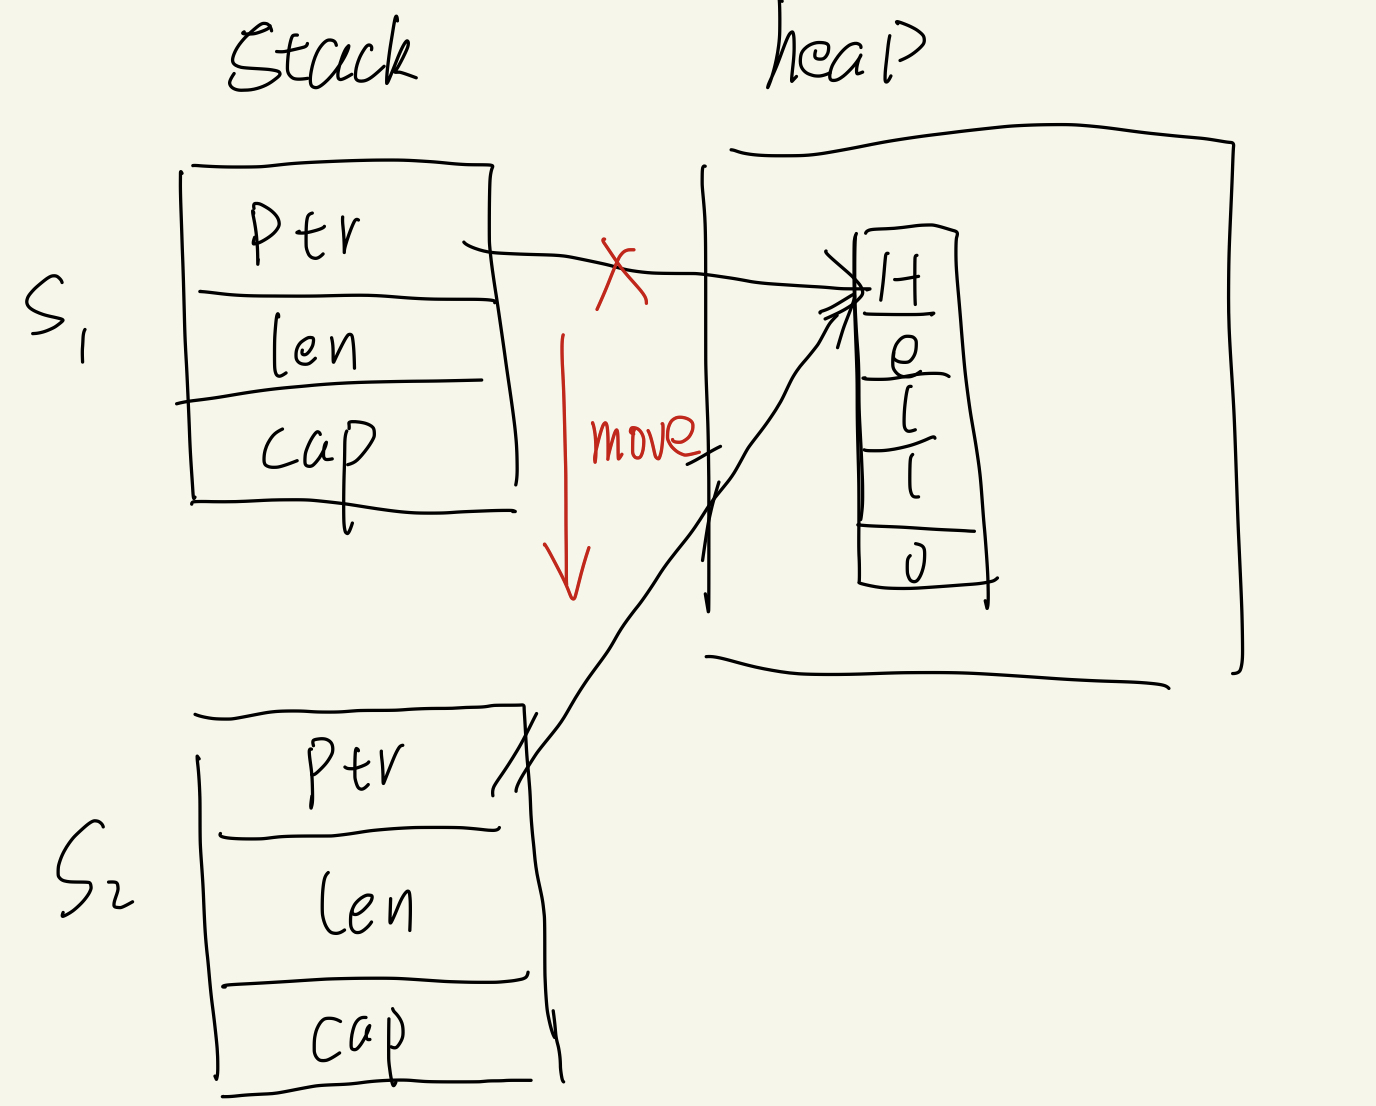 Stack
heap
S1
Ptr
len
cap
move
H
e
l
l
o
S2
Ptr
len
cap